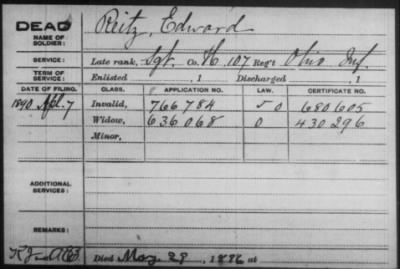 DEAD
NAME OF SOLDIER: Reitz, Edward
SERVICE: Late rank, Sgt. Co. H, 107 Reg't Ohio Inf.
TERM OF SERVICE: Enlisted , 1 Discharged , 1
DATE OF FILING. CLASS. APPLICATION NO. LAW. CERTIFICATE NO.
1890 Apl. 7 Invalid, 766784 50 680605
Widow, 636068 0 430296
Minor,
ADDITIONAL SERVICES:
REMARKS:
Died May 29, 1896 at